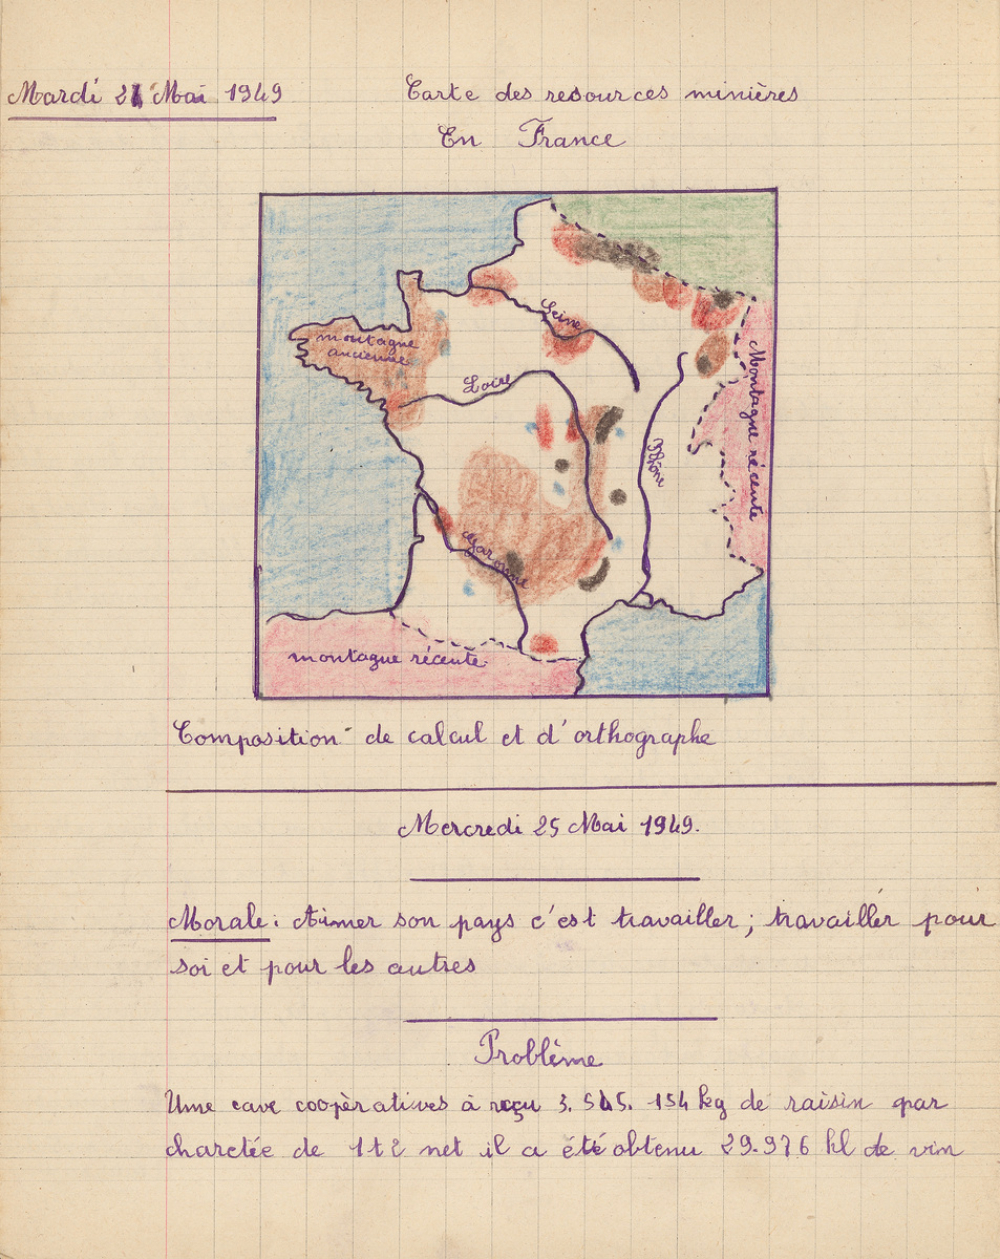 Mardi 24 Mai 1949
Carte des resources minières
En France
Seine
montague
ancienne
Loire
Montagne récente
Rhône
Garonne
montague récente.
Composition de calcul et d'orthographe
Mercredi 25 Mai 1949.
Morale : Aimer son pays c'est travailler ; travailler pour
soi et pour les autres
Problème
Une cave coopèratives à reçu 3.545.154 kg de raisin par
charetée de 1t2 net il a été obtenu 29.976 hl de vin